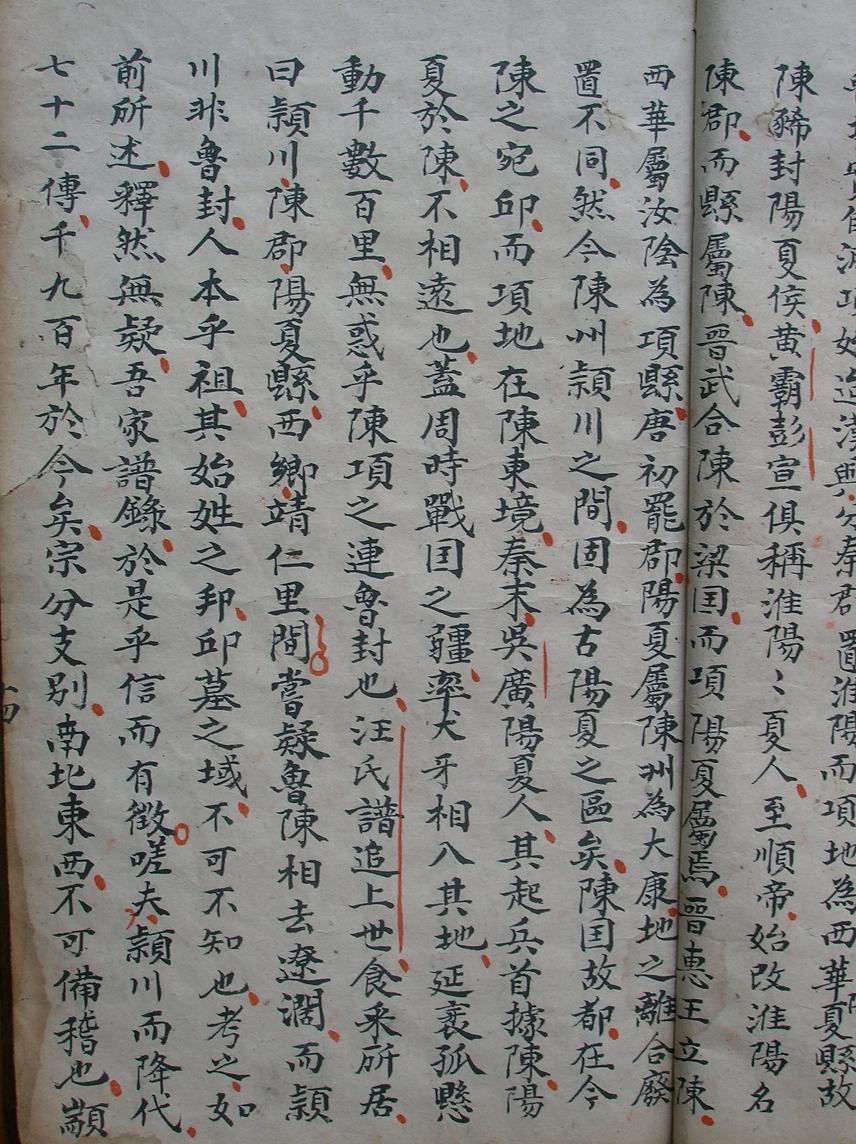 漢興分秦郡置淮陽而項地為西華夏縣故
陳豨封陽夏侯黄霸彭宣俱稱淮陽〻夏人至順帝始改淮陽名
陳郡而縣屬陳晉武合陳於梁国而項陽夏屬焉晉惠王立陳
西華屬汝陰為項縣唐初罷郡陽夏屬陳州為大康地之離合廢
置不同然今陳州頴川之間固為古陽夏之區矣陳国故都在今
陳之宛邱而項地在陳東境秦末吳廣陽夏人其起兵首據陳陽
夏於陳不相遠也蓋周時戰国之疆率犬牙相八其地延袤孤懸
動千數百里無惑乎陳項之連魯封也汪氏譜追上世食采所居
曰頴川陳郡陽夏縣西鄉靖仁里間嘗疑魯陳相去遼濶而頴
川非魯封人本乎祖其始姓之邦邱墓之域不可不知也考之如
前所述釋然無疑吾家譜錄於是乎信而有徵嗟夫頴川而降代
七十二傳千九百年於今矣宗分支别南北東西不可備稽也顓
十四